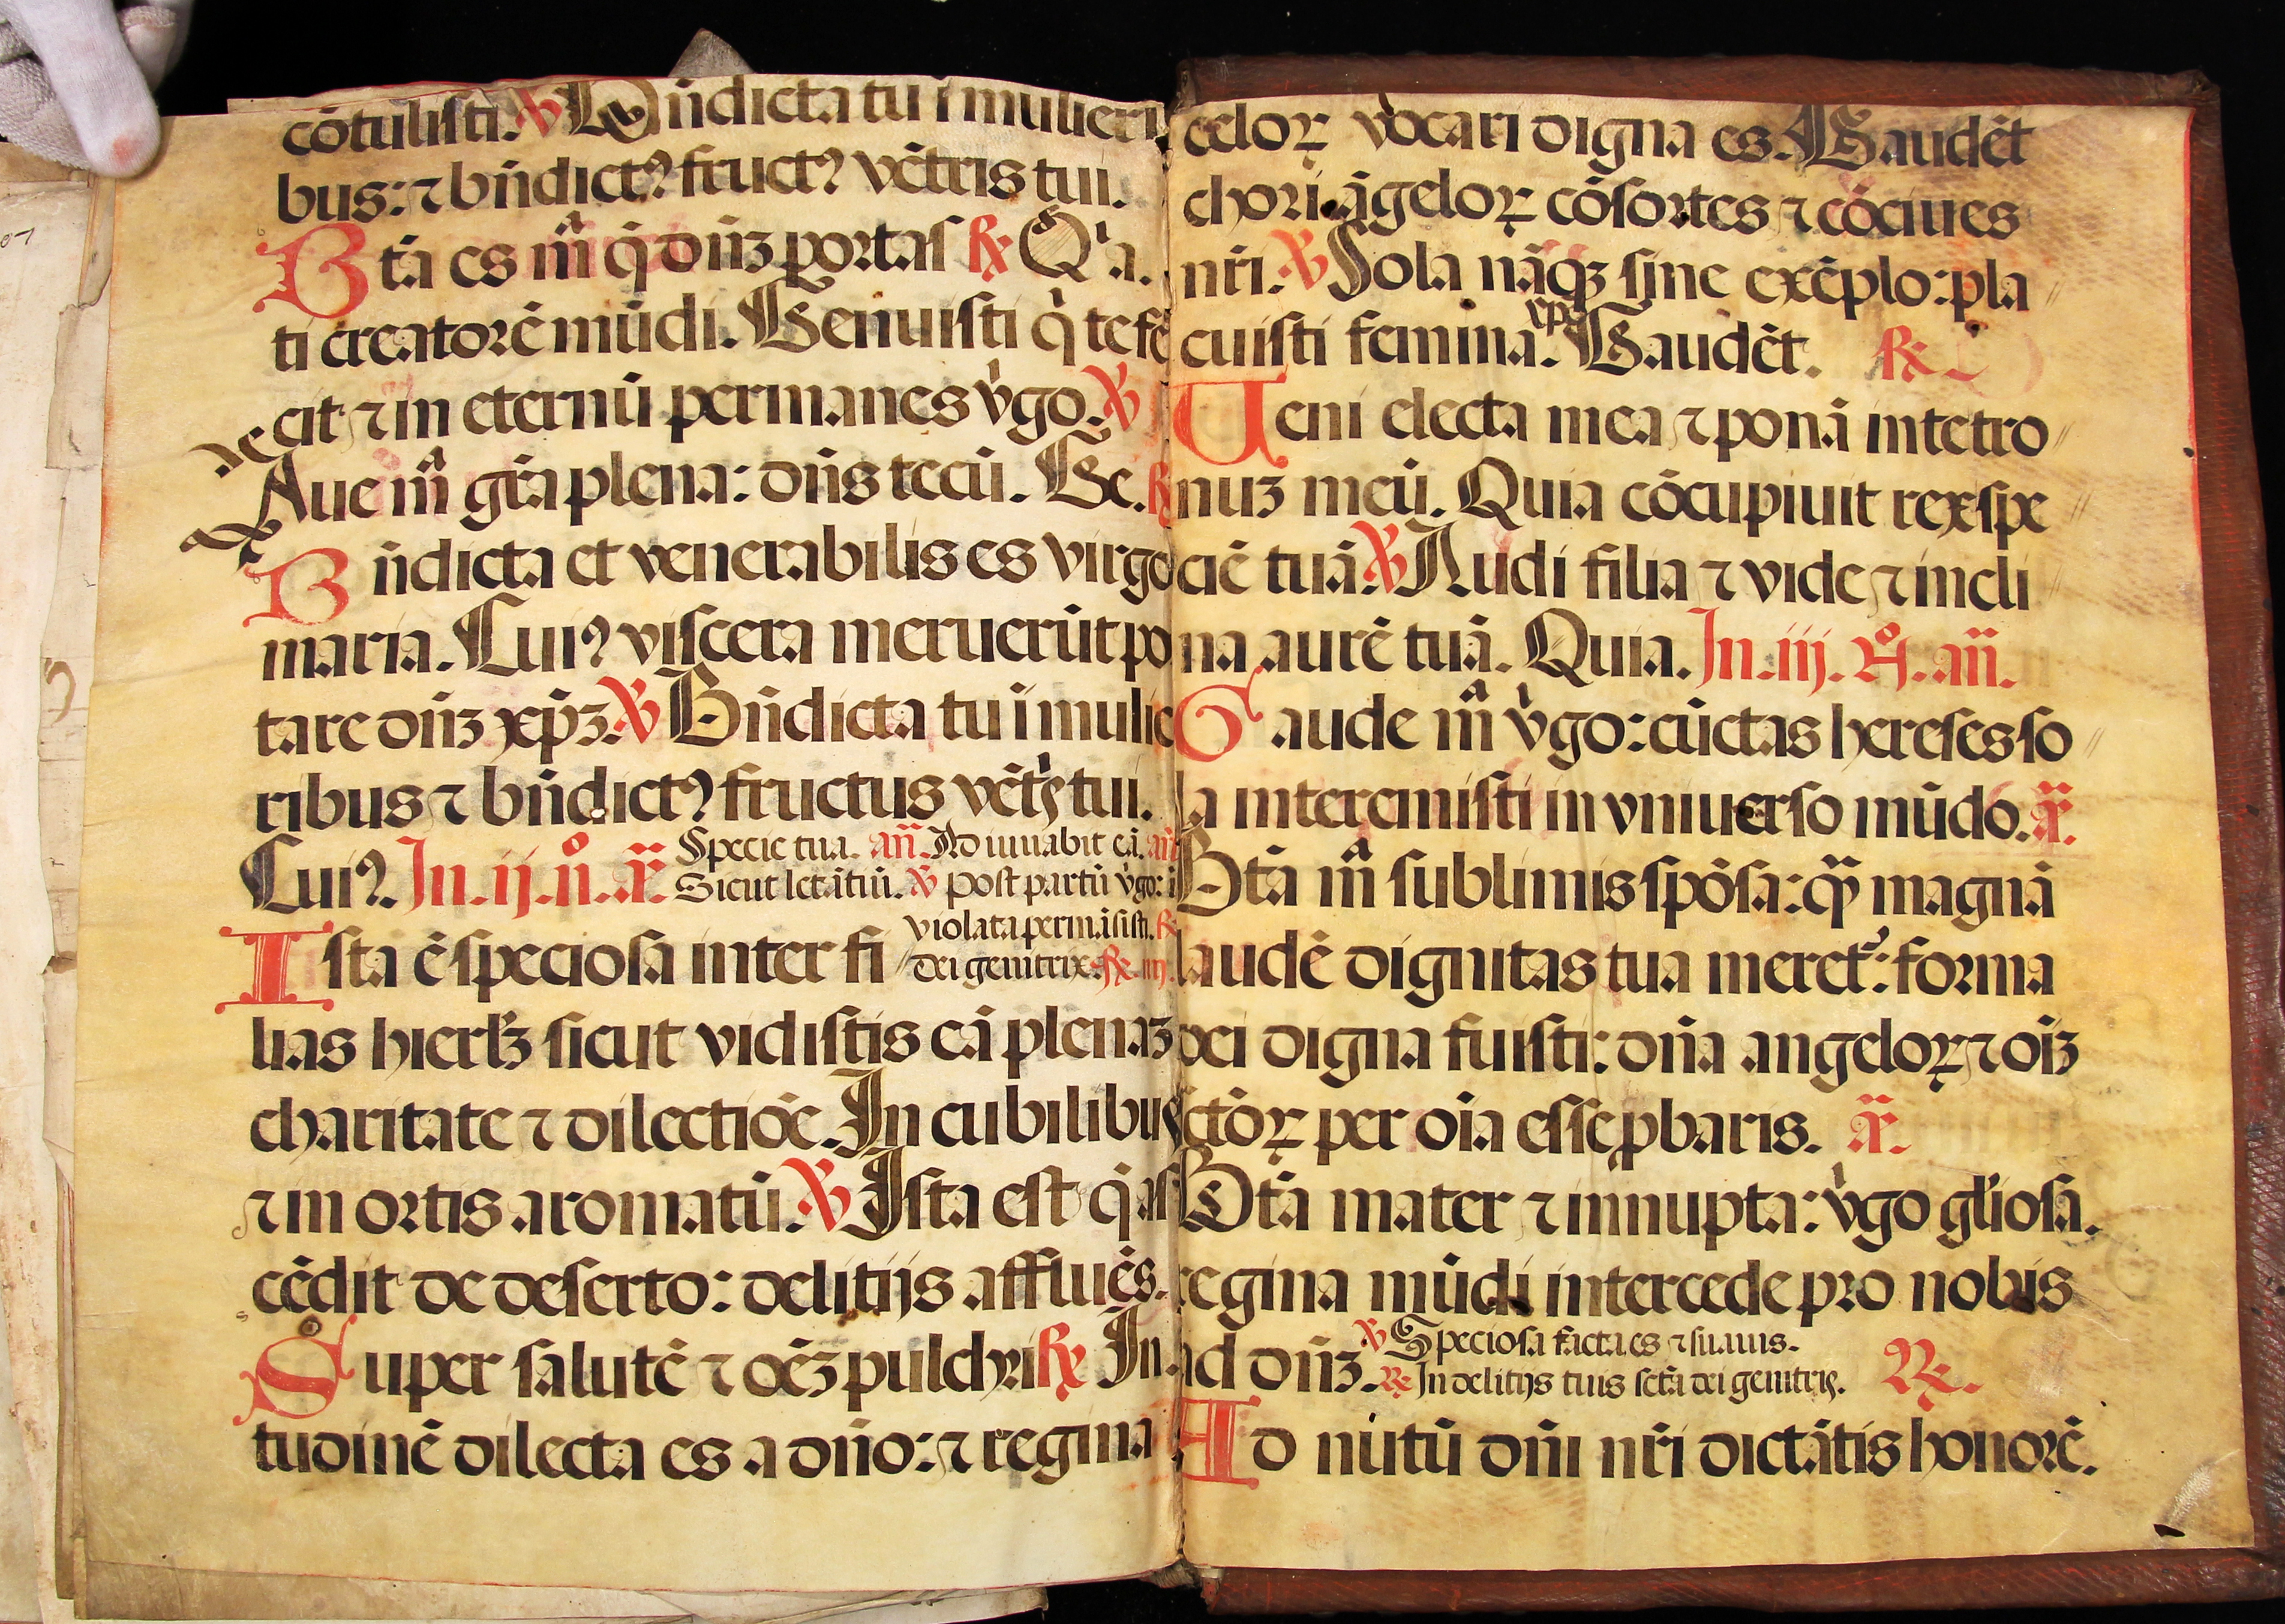 cōtulisti. ℣ Bn̄dicta tu ī mulieri
bus: ⁊ bn̄dictꝰ fructꝰ vētris tui.
Bt̄a es mᷓ q̄ dn̄ꝫ portas ℟ Q̇a.
ti creatorē mūdi. Genuisti q̇ te fe
cit ⁊ in eternū permanes v̇go. ℣
Aue mᷓ gr̄a plena: dn̄s tecū. Ge. ℟
Bn̄dicta et venerabilis es virgo
maria. Cuiꝰ viscera meruerūt po
tare dn̄ꝫ xp̄ꝫ. ℣ Bn̄dicta tu ī mulie
ribus ⁊ bn̄dictꝰ fructus vētꝭ tui.
Cuiꝰ. In. ij. n̊. a᷒.
Specie tua. an̄. Adiuuabit eā. an̄
Sicut letātiū. ℣ post partū v̇go: ī
violata permāsisti. ℟
dei genitrix. ℟ iiij.
Ista ē speciosa inter fi
lias hierłꝫ sicut vidistis eā plenaꝫ
charitate ⁊ dilectiōe. In cubilibus
⁊ in ortis aromatū. ℣ Ista est q̄ as
cēdit de deserto: delitijs affluēs.
Super salutē ⁊ oēꝫ pulchri ℟ In.
tudinē dilecta es a dn̄o: ⁊ regina
celoꝝ vocari digna es. Gaudēt
chori āgeloꝝ cōsortes ⁊ cōciues
nr̄i. ℣ Sola nāqꝫ sine exēplo: pla
cuisti femina xp̄o. Gaudēt. ℟
Veni electa mea ⁊ ponā in te tro
nuꝫ meū. Quia cōcupiuit rex spe
ciē tuā. ℣ Audi filia ⁊ vide ⁊ incli
na aurē tuā. Quia. In. iij. n̊. an̄.
Gaude mᷓ v̇go: cūctas hereses so
la interemisti in vniuerso mūdo. a᷒.
Bt̄a mᷓ sublimis spōsa: qᷓ magnā
laudē dignitas tua meret᷑: forma
dei digna fuisti: dn̄a angeloꝝ ⁊ oīꝫ
sctōꝝ per oīa esse ꝓbaris. a᷒.
Bt̄a mater ⁊ innupta: v̇go gło̅iosa.
regina mūdi intercede pro nobis
ad dn̄ꝫ. ℣ Speciosa facta es ⁊ suauis.
℟ In delitijs tuis sct̄a dei genitrix. ℟.
Ad nutū dn̄i nr̄i dictātis honorē.